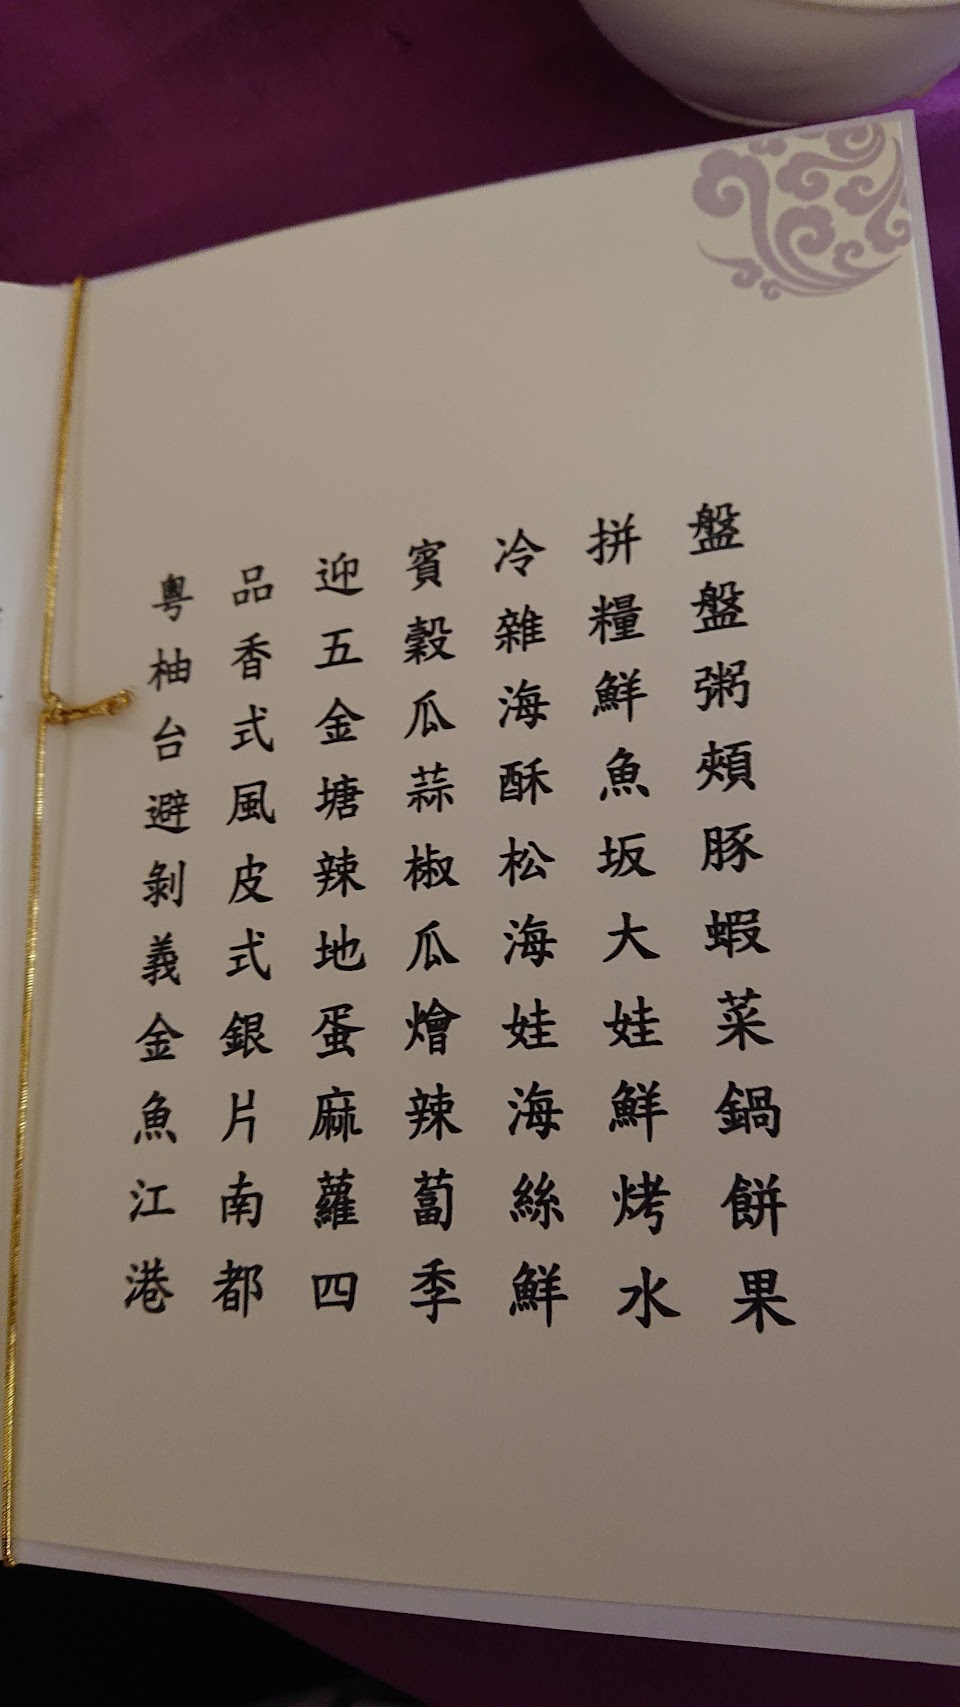 粵品迎賓冷拼盤
柚香五穀雜糧盤
台式金瓜海鮮粥
避風塘蒜酥魚頰
剝皮辣椒松坂豚
義式地瓜海大蝦
金銀蛋燴娃娃菜
魚片麻辣海鮮鍋
江南蘿蔔絲烤餅
港都四季鮮水果